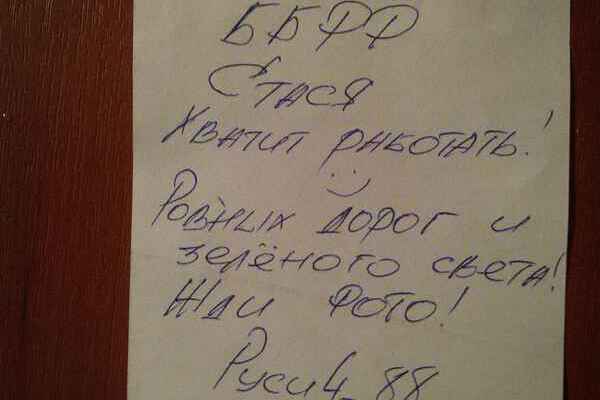 ББРР
Стася
Хватит работать!
Ровных дорог и
зелёного света!
Жди фото!
Руси4_88